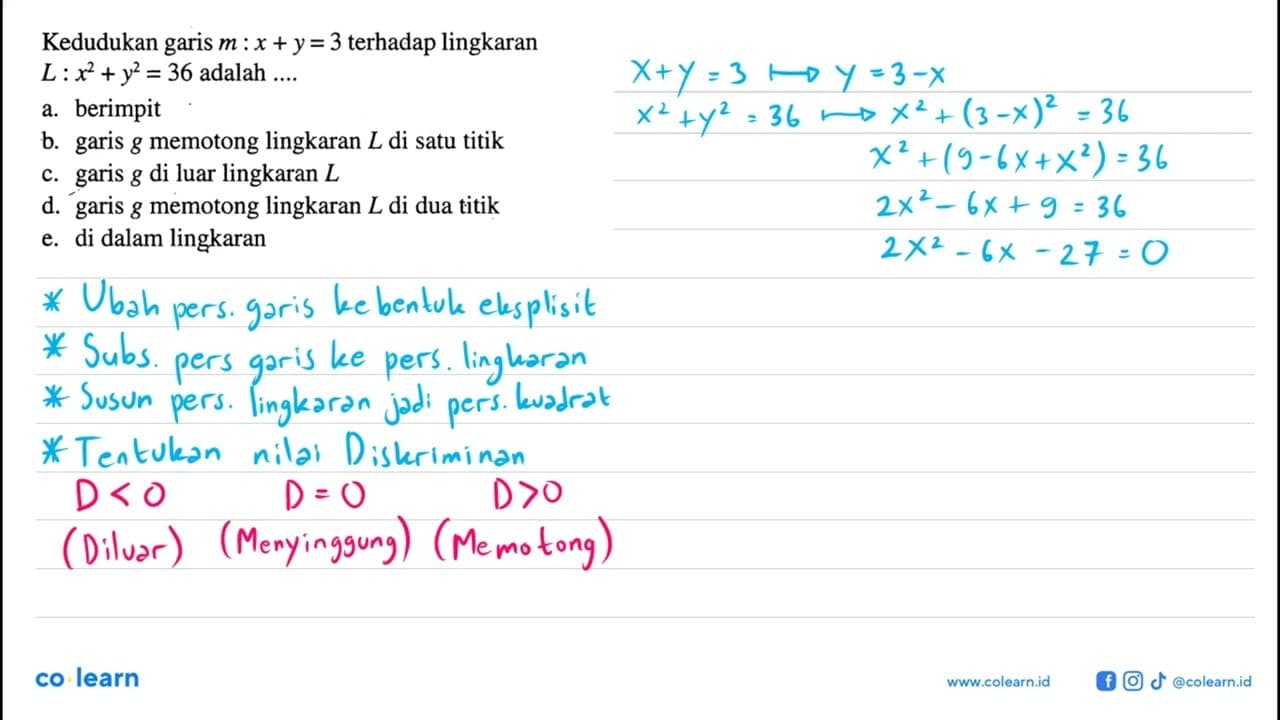 Kedudukan garis m : x + y = 3 terhadap lingkaran
L : x² + y² = 36 adalah ....
a. berimpit
b. garis g memotong lingkaran L di satu titik
c. garis g di luar lingkaran L
d. garis g memotong lingkaran L di dua titik
e. di dalam lingkaran
x+y = 3 ↦ y = 3-x
x² + y² = 36 ↦ x² + (3-x)² = 36
x² + (9-6x+x²) = 36
2x² - 6x + 9 = 36
2x² - 6x - 27 = 0
* Ubah pers. garis ke bentuk eksplisit
* Subs. pers garis ke pers. lingkaran
* Susun pers. lingkaran jadi pers. kuadrat
* Tentukan nilai Diskriminan
D < 0 D = 0 D > 0
(Diluar) (Menyinggung) (Memotong)
co learn
www.colearn.id @colearn.id